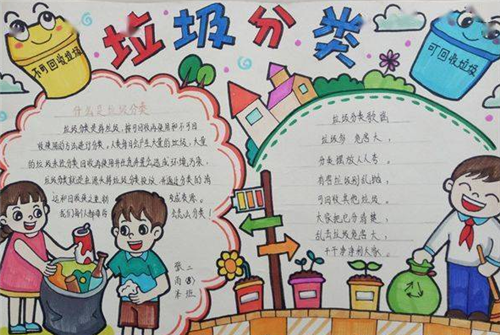 不可回收垃圾
垃圾分类
可回收垃圾
什么是垃圾分类
垃圾分类是将垃圾,按可回收再使用和不可回
收使用的分类方法进行分类,人类每日会产生大量的垃圾,大量
的垃圾未经分类回收再使用并任意弃置会造成环境污染.
垃圾分类就是在源头将垃圾分类投放,并通过分类的清
运和回收使之重新变成资源.
垃圾分类!
垃圾分类歌谣
垃圾多 危害大,
分类摆放人人夸.
有害垃圾别乱抛,
可回收其他垃圾,
大家把它分清楚,
乱丢垃圾危害大,
干干净净利大家.